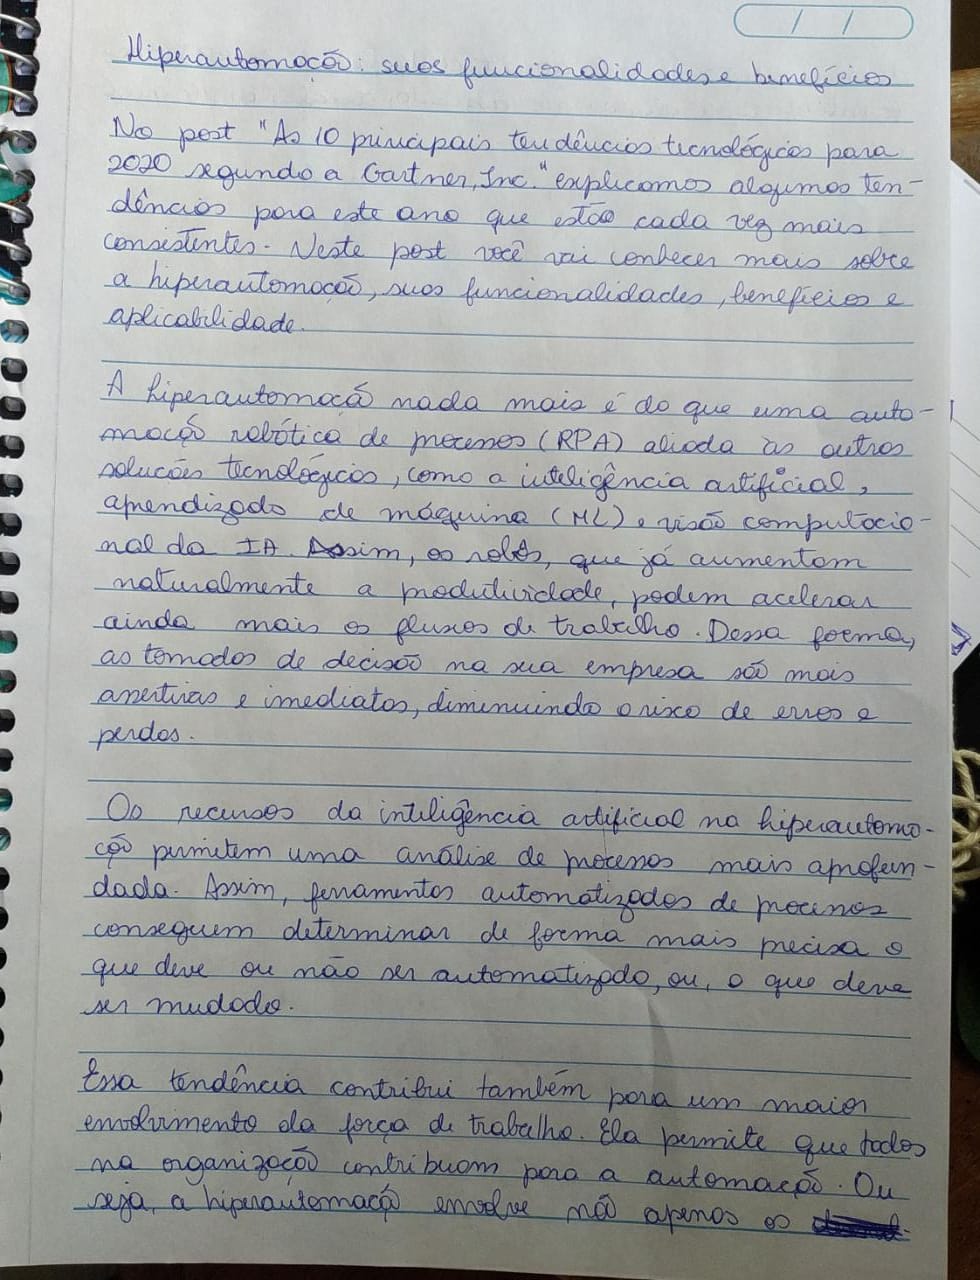 Hiperautomoção: suas funcionalidades e benefícios
No post "As 10 principais tendências tecnológicas para
2020 segundo a Gartner, Inc." explicamos algumas ten-
dências para este ano que estão cada vez mais
consistentes. Neste post você vai conhecer mais sobre
a hiperautomoção, suas funcionalidades, benefícios e
aplicabilidade.
A hiperautomoçã nada mais é do que uma auto-
moção robótica de processos (RPA) aliada às outras
soluções tecnológicas, como a inteligência artificial,
aprendizado de máquina (ML) e visão computacio-
nal da IA. Assim, os robôs, que já aumentam
naturalmente a produtividade, podem acelerar
ainda mais os fluxos de trabalho. Dessa forma,
as tomadas de decisão na sua empresa são mais
assertivas e imediatas, diminuindo o risco de erros e
perdas.
Os recursos da inteligência artificial na hiperautomo-
ção permitem uma análise de processos mais aprofun-
dada. Assim, ferramentas automatizadas de processos
conseguem determinar de forma mais precisa o
que deve ou não ser automatizado, ou, o que deve
ser mudado.
Essa tendência contribui também para um maior
envolvimento da força de trabalho. Ela permite que todos
na organização contribuam para a automação. Ou
seja, a hiperautomaçã envolve nã apenas os